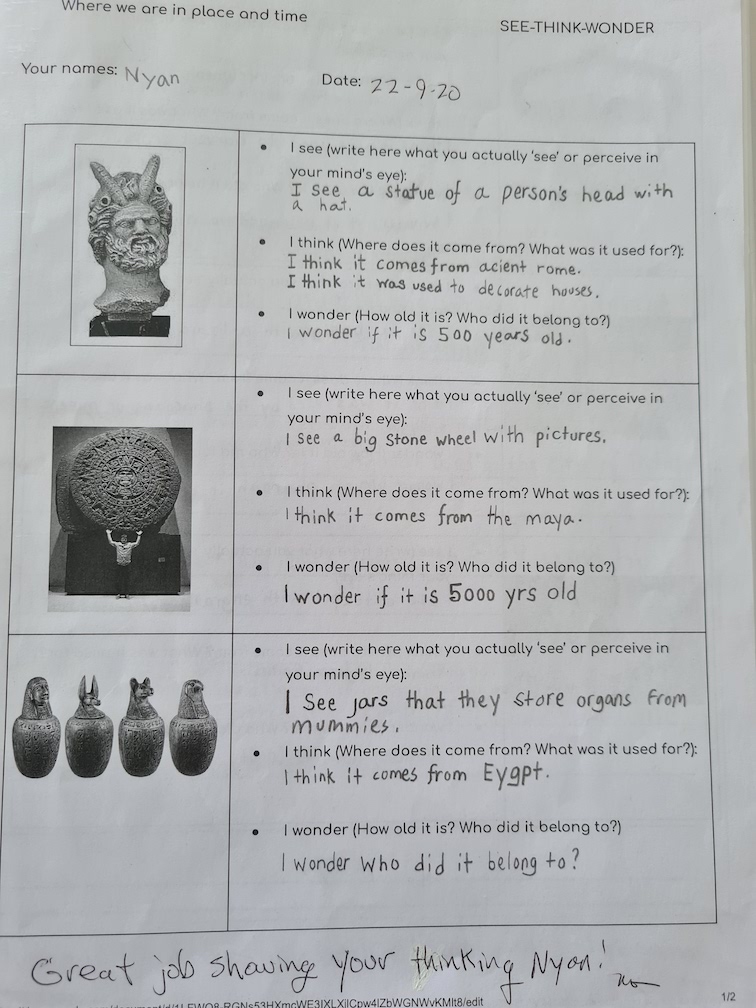 Where we are in place and time
SEE-THINK-WONDER
Your names: Nyan
Date: 22-9-20
• I see (write here what you actually 'see' or perceive in
your mind's eye):
I see a statue of a person's head with
a hat.
• I think (Where does it come from? What was it used for?):
I think it comes from acient rome.
I think it was used to decorate houses.
• I wonder (How old it is? Who did it belong to?)
I wonder if it is 500 years old.
• I see (write here what you actually 'see' or perceive in
your mind's eye):
I see a big stone wheel with pictures.
• I think (Where does it come from? What was it used for?):
I think it comes from the maya.
• I wonder (How old it is? Who did it belong to?)
I wonder if it is 5000 yrs old
• I see (write here what you actually 'see' or perceive in
your mind's eye):
I see jars that they store organs from
mummies.
• I think (Where does it come from? What was it used for?):
I think it comes from Eygpt.
• I wonder (How old it is? Who did it belong to?)
I wonder who did it belong to?
Great job showing your thinking Nyan!
1/2